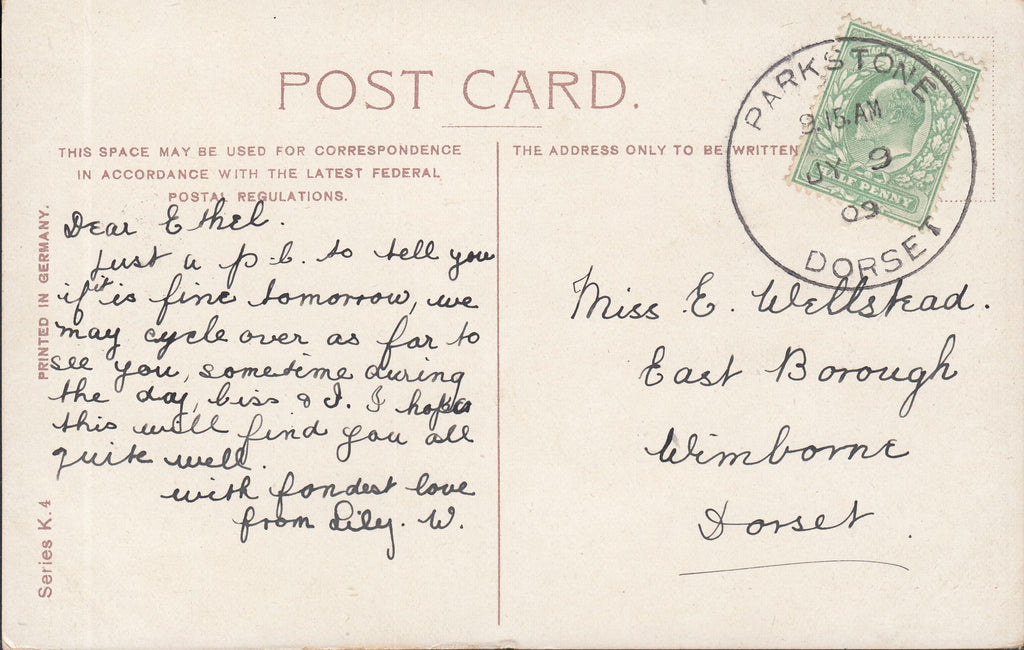 POST CARD.
THIS SPACE MAY BE USED FOR CORRESPONDENCE
IN ACCORDANCE WITH THE LATEST FEDERAL
POSTAL REGULATIONS.
THE ADDRESS ONLY TO BE WRITTEN
PARKSTONE
9.15.AM
JY 9
09
DORSET
HALF PENNY
Dear Ethel.
Just a p.c. to tell you
if it is fine tomorrow, we
may cycle over as far to
see you, sometime during
the day, Ciss & I. I hope
this will find you all
quite well.
with fondest love
from Lily. W.
Miss E. Wellstead.
East Borough
Wimborne
Dorset.
PRINTED IN GERMANY.
Series K. 4